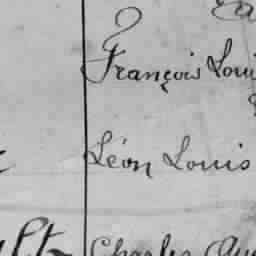 François Loui
Léon Louis
Charles